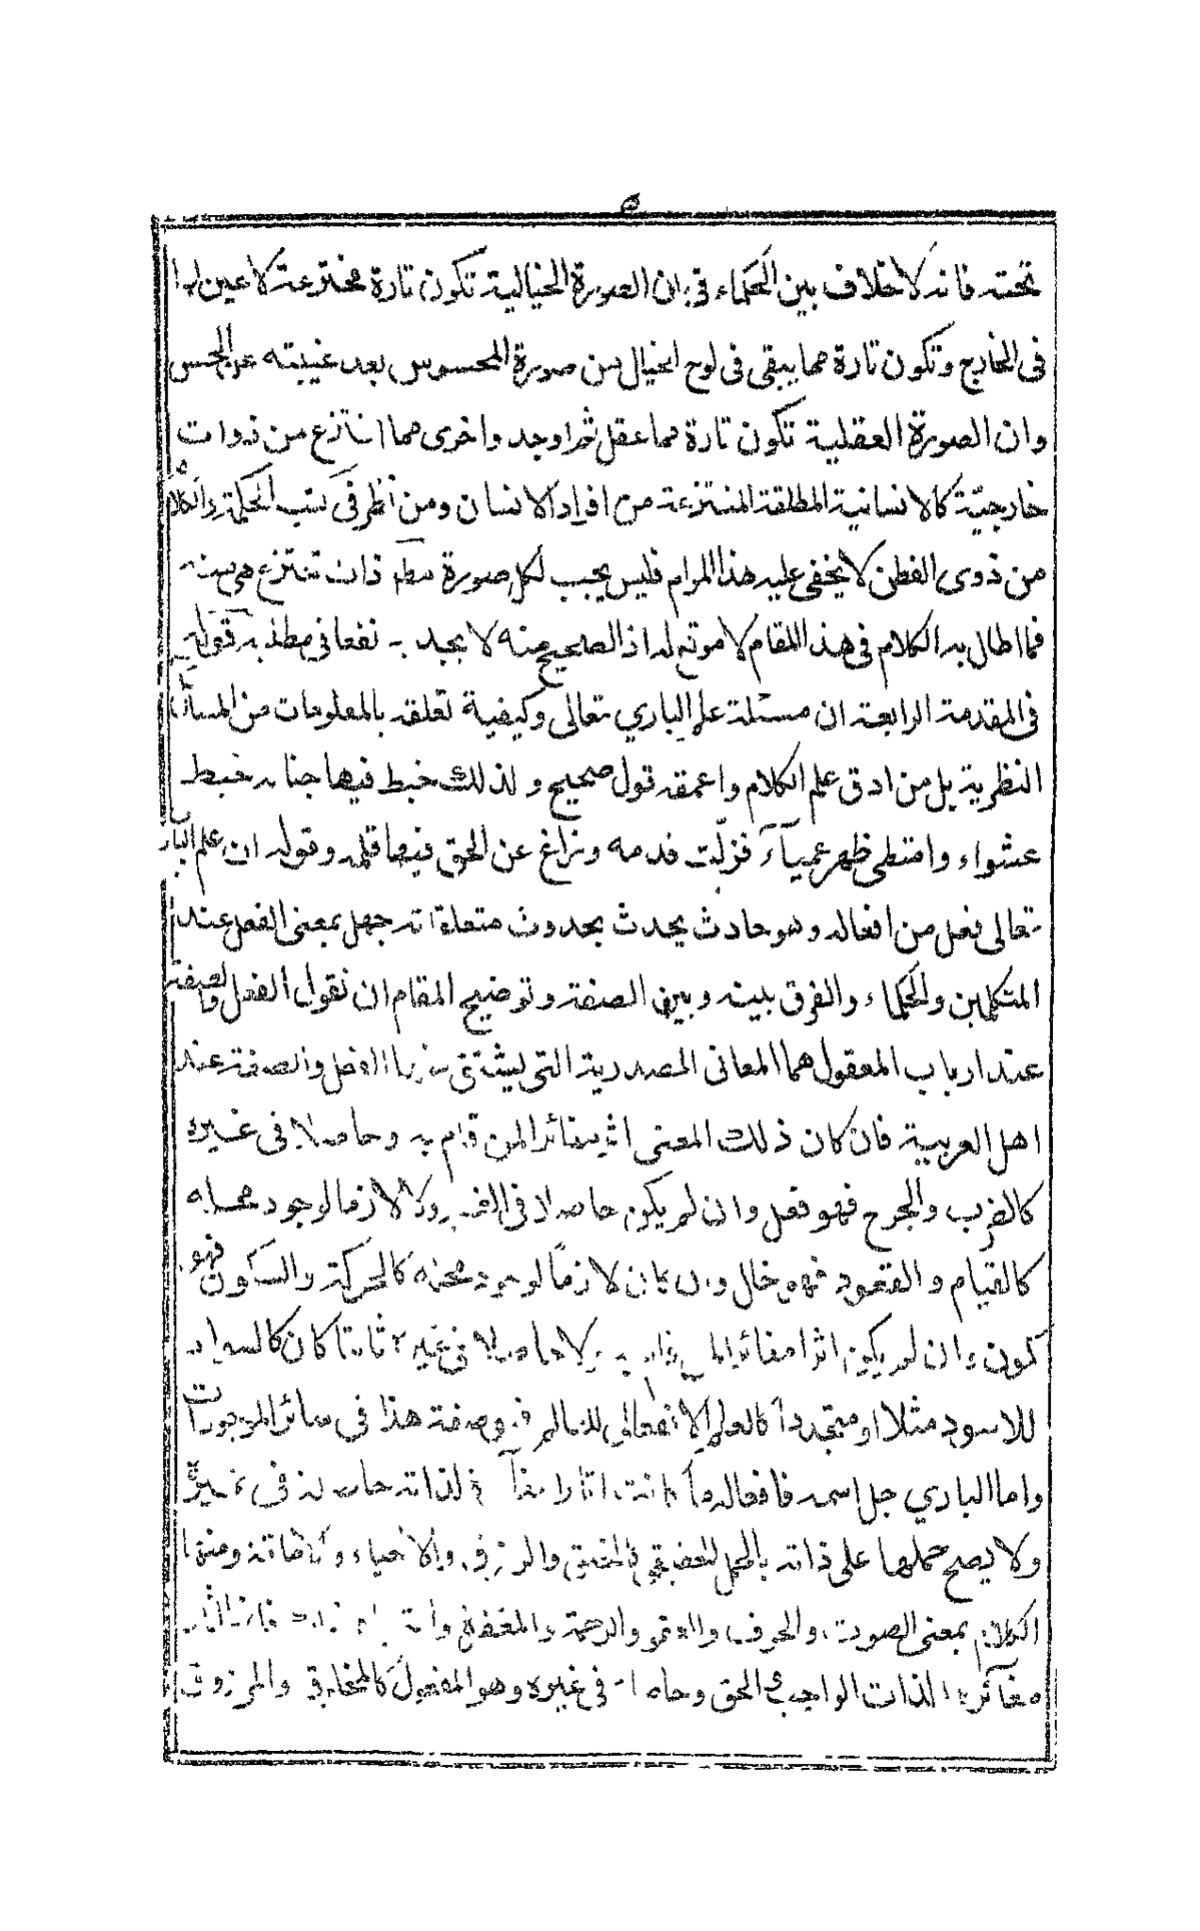 ٥
تحته فانه لاخلاف بين الحكماء فى ان الصورة الخيالية تكون تارة مخترعة لاعين لها
فى الخارج وتكون تارة مما يبقى فى لوح الخيال من صورة المحسوس بعد غيبته عن الحس
وان الصورة العقلية تكون تارة مما عقل ثم اوجد واخرى مما انتزع من ذوات
خارجيّة كالانسانية المطلقة المنتزعة من افراد الانسان ومن نظر فى كتب الحكمة والكلام
من ذوى الفطن لا يخفى عليه هذا المرام فليس يجب لكل صورة ذات تنتزع هى منه
فما اطال به الكلام فى هذا المقام لا موقع له اذ الصحيح منه لا يجديه نفعا فى مطلبه قوله
فى المقدمة الرابعة ان مسئلة علم الباري تعالى وكيفية تعلقه بالمعلومات من المسائل
النظرية بل من ادق علم الكلام واعمقه قول صحيح ولذلك خبط فيها جنابه خبط
عشواء وامتطى ظهر عمياء فزلّت قدمه وزاغ عن الحق فيها قلمه وقوله ان علم البارى
تعالى فعل من افعاله وهو حادث يحدث بحدوث متعلقاته جهل بمعنى الفعل عند
المتكلمين والحكماء والفرق بينه وبين الصفة وتوضيح المقام ان نقول الفعل والصفة
عند ارباب المعقول هما المعانى المصدرية التى يشتق منها الفعل والصفة عند
اهل العربية فان كان ذلك المعنى اثرا مغائرا لمن قام به وحاصلا فى غيره
كالضرب والجرح فهو فعل وان لم يكن حاصلا فى الغير ولا لازما لوجود محله
كالقيام والقعود فهو حال وان كان لازماً لوجود محله كالحركة والسكون فهو
كون وان لم يكن اثرا مغائرا لمن قام به ولا حاصلا فى غيره ثابتا كان كالسواد
للاسود مثلا او متجدداً كالعلم الانفعالى للعالم فهو صفة هذا فى سائر الموجودات
واما الباري جل اسمه فافعاله ما كانت اثارا لذاته حاصلة فى غيره
ولا يصح حملها على ذاته بالحمل الحقيقي كالخلق والرزق والاحياء والاماتة ومنها
الكلام بمعنى الصوت والحروف والعفو والرحمة والمغفرة
مغائرة الذات الواجب الحق وحاصلة فى غيره وهو المفعول كالمخلوق والمرزوق